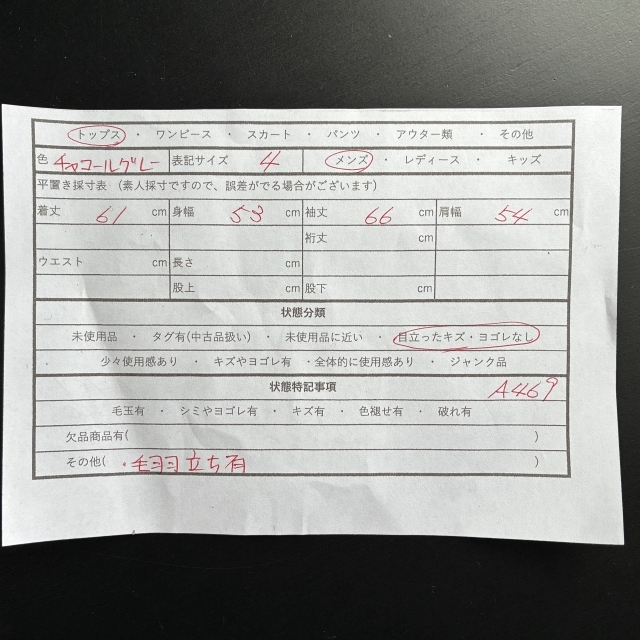 トップス ・ ワンピース ・ スカート ・ パンツ ・ アウター類 ・ その他
色 チャコールグレー 表記サイズ 4 メンズ ・ レディース ・ キッズ
平置き採寸表 (素人採寸ですので、誤差がでる場合がございます)
着丈 61 cm 身幅 53 cm 袖丈 66 cm 肩幅 54 cm
裄丈 cm
ウエスト cm 長さ cm
股上 cm 股下 cm
状態分類
未使用品 ・ タグ有(中古品扱い) ・ 未使用品に近い ・ 目立ったキズ・ヨゴレなし
少々使用感あり ・ キズやヨゴレ有 ・全体的に使用感あり ・ ジャンク品
状態特記事項 A469
毛玉有 ・ シミやヨゴレ有 ・ キズ有 ・ 色褪せ有 ・ 破れ有
欠品商品有( )
その他( ・毛羽立ち有 )